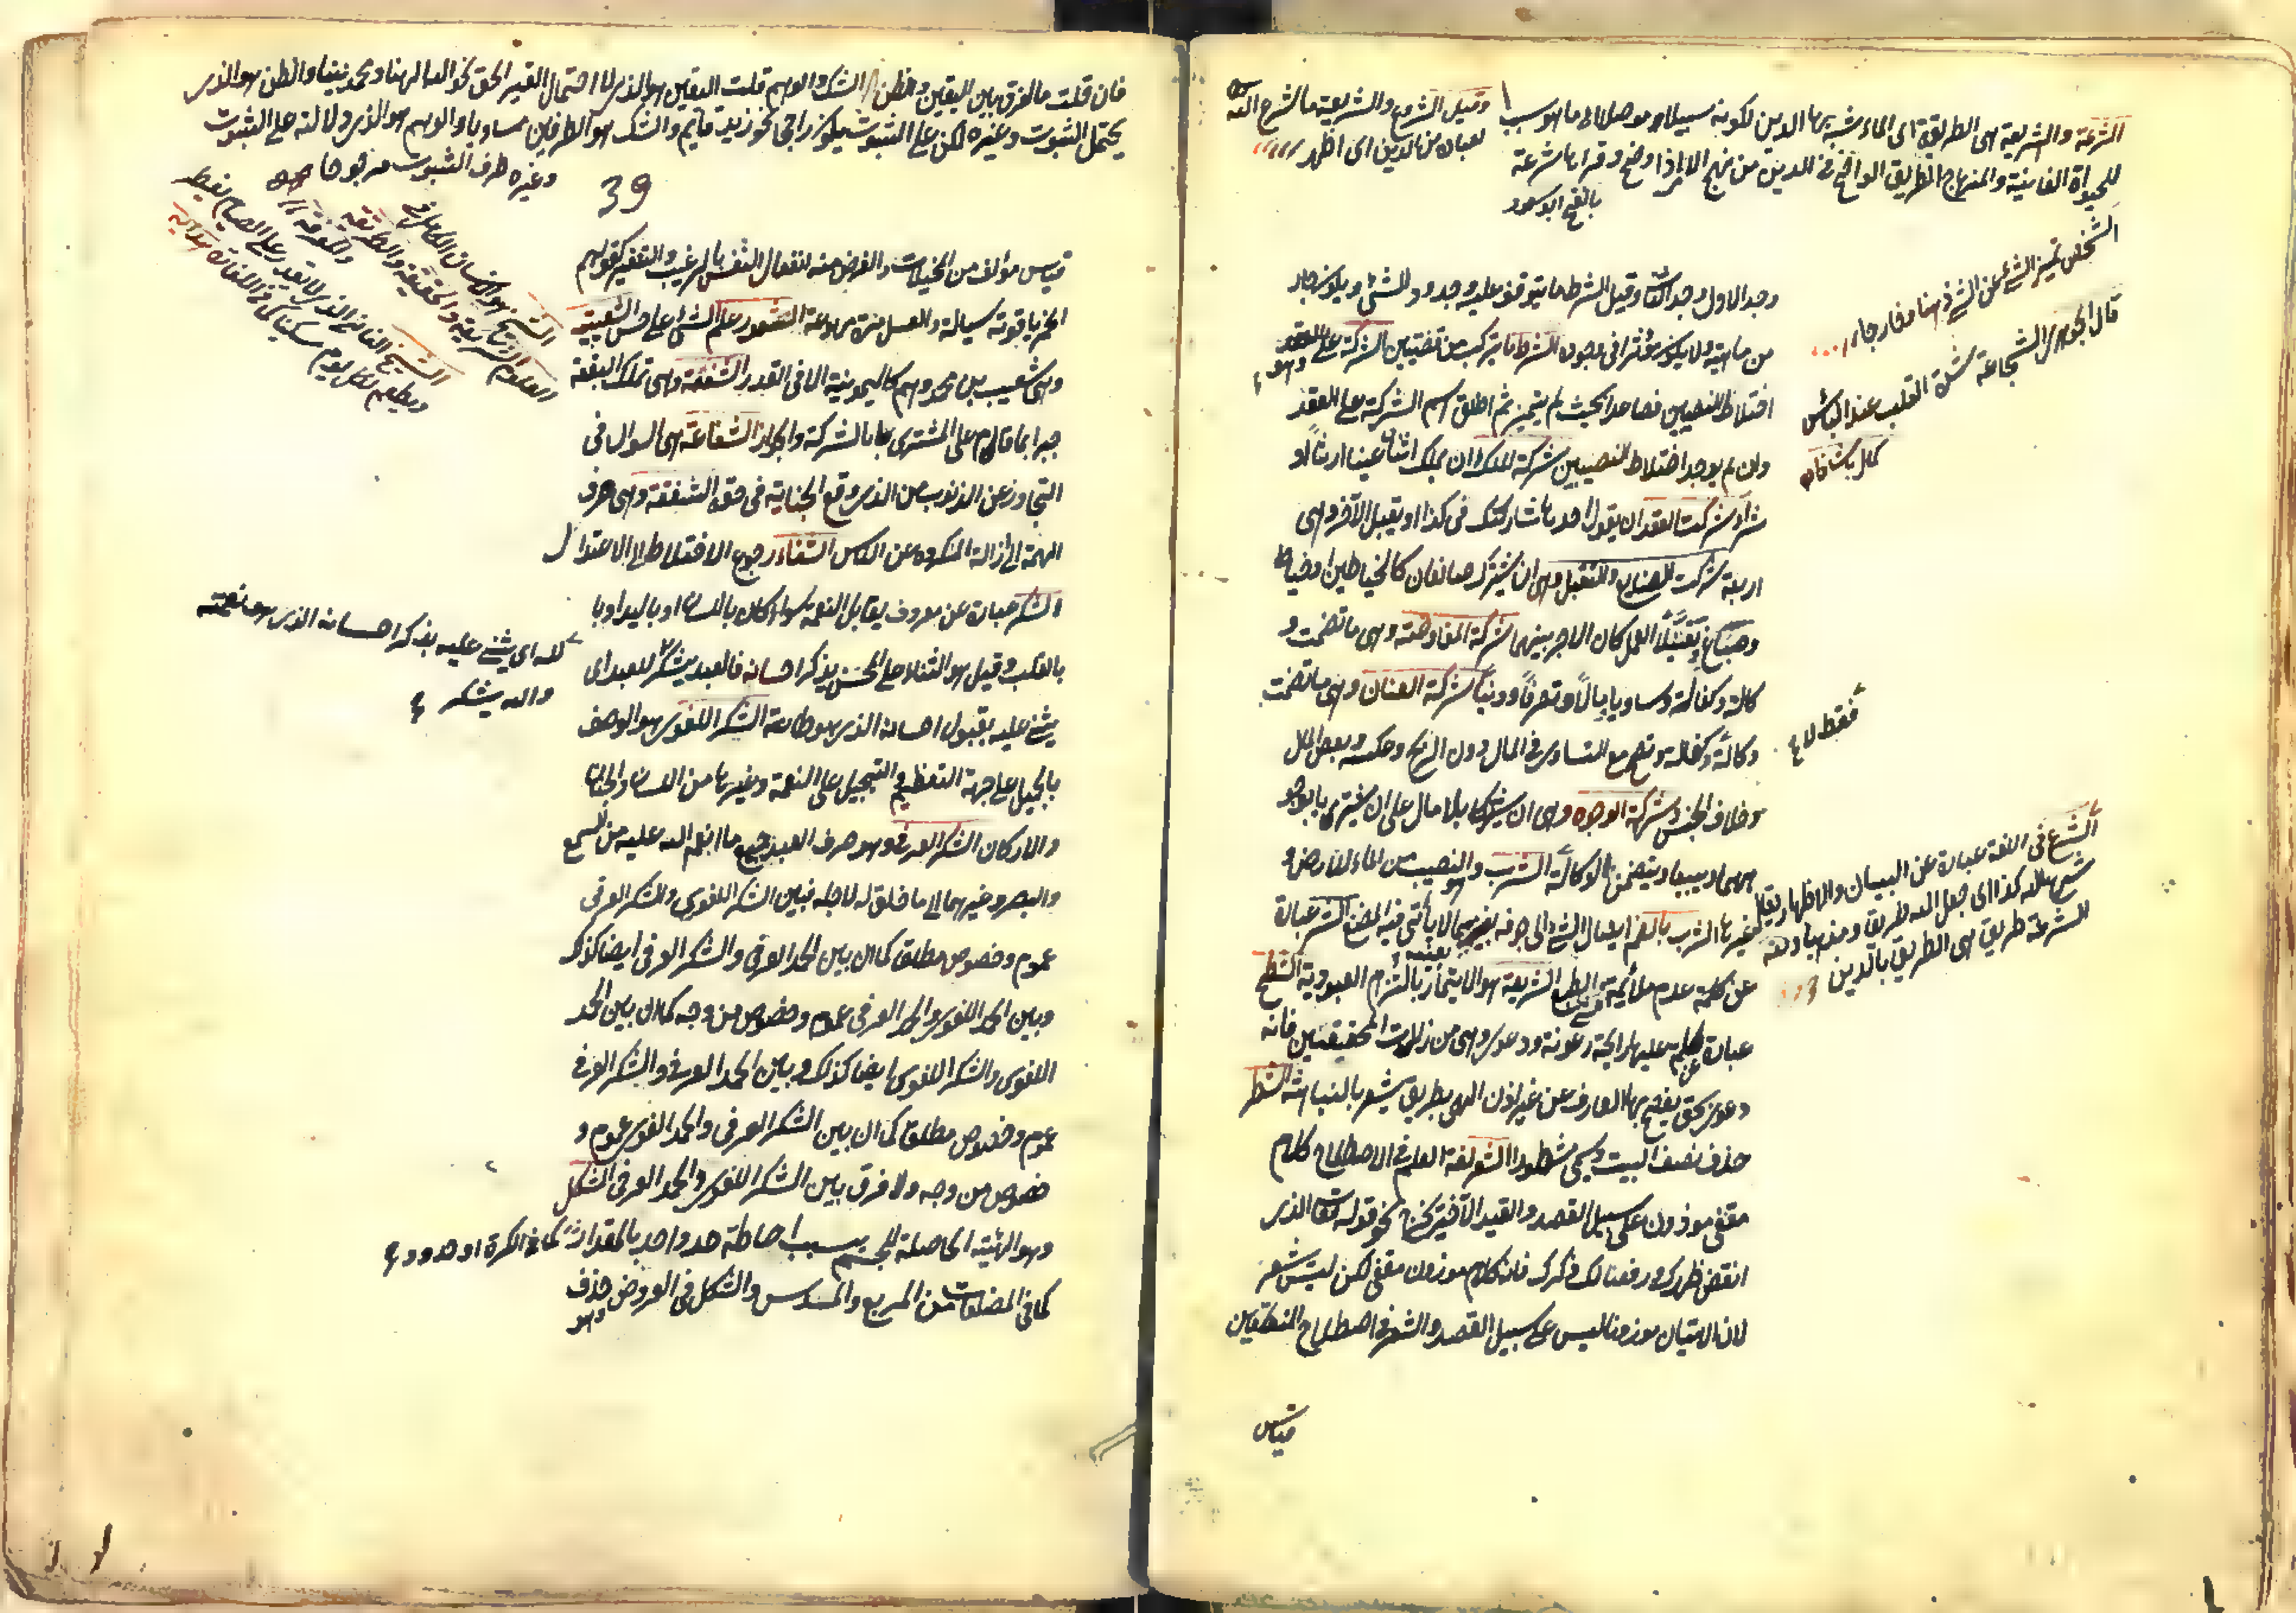 الشرعة والشريعة هى الطريقة الى الماء شبه بها الدين لكونه سبيلا موصلا الى ما هو سبب
للحيوة الفانية والمنهاج الطريق الواضح فى الدين من نهج الامر اذا وضح وقرأ بها شرعة
بالفتح ابو سعود
وقيل الشرع والشريعة ما شرع الله
لعباده من الدين اى اظهر
الشخص تميز الشئ عن الشئ ذهنا وخارجا
قال الجوهرى الشجاعة شدة القلب عند البأس
كمال پاشا زاده
وجد الاول وجد الثانى وقيل الشرط ما يتوقف عليه وجود الشئ ويكون خارجا
من ماهيته ولا يكون مؤثرا فى وجوده الشرطية ما تتركب من قضيتين الشركة على العقد وهو
اختلاط النصيبين فصاعدا بحيث لم يتميز ثم اطلق اسم الشركة على العقد
وان لم يوجد اختلاط النصيبين شركة الملك ان يملك اثنان عينا ارثا او
شراء شركت العقد ان يقول احدهما شاركتك فى كذا او يقبل الآخر وهى
اربعة شركت الصنايع والتقبل وهى ان يشترك صانعان كالخياطين او خياط
وصباغ ويتقبلا العمل كان الاجر بينهما شركة المفاوضة وهى ما تضمنت و
كالة وكفالة وتساويا مالا وتصرفا ودينا شركة العنان وهى ما تضمنت
وكالة وكفالة وتصح مع التساوى فى المال دون الربح وعكسه وبعض المال
فقط لا
وخلاف الجنس وشركة الوجوه وهى ان يشتركا بلا مال على ان يشتريا بوجو
ههما ويبيعا ويتضمن الوكالة الشرب هو النصيب من الماء للاراضى و
غيرها الشرب بالضم ايصال الشئ الى جوفه بفيه مما لا يأتى فيه المضغ الشر عبارة
عن كلمة عدم ملائمة الطبع الشريعة هو الايتمار بالتزام العبودية الشطح
عبارة عن كلمة عليها رائحة رعونة ودعوى وهى من زلات المحققين فانه
دعوى بحق يفصح بها العارف عن غير اذن الهى بطريق يشعر بالنباهة الشطر
حذف نصف البيت ويسمى مشطورا الشعر لغة العلم فى الاصطلاح كلام
مقفى موزون على سبيل القصد والقيد الآخير يخرج نحو قوله تعالى الذى
انقض ظهرك ورفعنا لك ذكرك فانه كلام موزون مقفى لكن ليس شعر
لان الاتيان موزونا ليس على سبيل القصد والشعر فى اصطلاح المنطقيين
الشرع فى اللغة عبارة عن البيان والاظهار يقال
شرع الله كذا اى جعل الله طريقا ومذهبا ومنه
المشرعة طريق هى الطريق بالدين
قياس
فان قلت ما الفرق بين اليقين والظن والشك والوهم قلت اليقين هو الذى لا احتمال لغير الحق نحو الله الهنا ومحمد نبينا والظن هو الذى
يحتمل الثبوت وغيره لكن على الثبوت يكون راجحا نحو زيد قائم والشك هو الطرفين مساويا والوهم هو الذى دلالته على الثبوت
وغيره طرف الثبوت مرجوحا
39
الشيخ هو الانسان الكامل فى
العلوم الشريعة والحقيقة والطريقة
والمعرفة
الشيخ الفانى الذى لا يقدر على الصيام يفطر
ويطعم لكل يوم مسكينا
قياس مؤلف من المخيلات والغرض منه انفعال النفس بالترغيب والتنفير كقولهم
الخمر ياقوتة سيالة والعسل مرة مهوعة الشعور علم الشئ على حس الشعيبية
وهى شعيب بن محمد وهم كالميمونية الا فى القدر الشفعة وهى تملك البقعة
جبرا بما قام على المشترى بها بالشركة والجوار الشفاعة هى السوال فى
التجاوز عن الذنوب من الذى وقع الجناية فى حقه الشفقة وهى صرف
الهمة الى ازالة المكروه عن الناس الشفاء رجوع الاختلاط الى الاعتدال
الشكر عبارة عن معروف يقابل النعمة سواء كان باللسان او باليد او با
بالقلب وقيل هو الثناء على المحسن بذكر احسانه فالعبد يشكر للعبد اى
لله اى يثنى عليه بذكر احسانه الذى هو نعمته
والله يشكر
يثنى عليه بقبول احسانه الذى هو طاعة الشكر اللغوى هو الوصف
بالجميل على جهة التعظيم والتبجيل على النعمة وغيرها من اللسان والجنان
والاركان الشكر العرفى وهو صرف العبد جميع ما انعم الله عليه من السمع
والبصر وغيرهما الى ما خلق له لاجله فبين الشكر اللغوى والشكر العرفى
عموم وخصوص مطلق كما ان بين الحمد العرفى والشكر العرفى ايضا كذلك
وبين الحمد اللغوى والحمد العرفى عموم وخصوص من وجه كما ان بين الحمد
اللغوى والشكر اللغوى ايضا كذلك وبين الحمد العرفى والشكر العرفى
عموم وخصوص مطلق كما ان بين الشكر العرفى والحمد اللغوى عموم و
خصوص من وجه ولا فرق بين الشكر اللغوى والحمد العرفى الشكل
وهو الهيئة الحاصلة للجسم بسبب احاطة حد واحد بالمقدار كما فى الكرة او حدود
كما فى المضلعات من المربع والمسدس والشكل فى العروض حذف
وهو